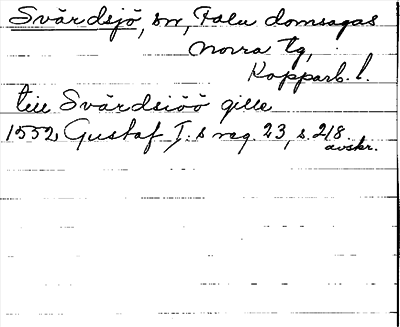 Svärdsjö, sn, Falu domsagas
norra tg,
Kopparb. l.
till Svärdsiöö gille
1552 Gustaf I:s reg. 23, s. 218.
avskr.